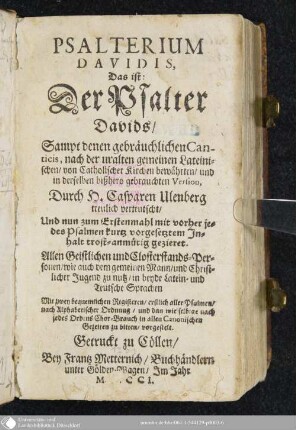 PSALTERIUM
DAVIDIS,
Das ist:
Der Psalter
Davids/
Sampt denen gebräuchlichen Can-
ticis, nach der uralten gemeinen Lateini-
schen/ von Catholischer Kirchen bewährten/ und
in derselben bißhero gebrauchten Version,
Durch H. Casparen Ulenberg
treulich verteutscht/
Und nun zum Erstenmahl mit vorher je-
des Psalmen kurtz vorgesetztem In-
halt trost-anmütig gezieret.
Allen Geistlichen und Closterstands-Per-
sonen/ wie auch dem gemeinen Mann/ und Christ-
licher Jugend zu nutz/ in beyde Latein- und
Teutsche Sprachen
Mit zween bequemlichen Registeren/ erstlich aller Psalmen/
nach Alphabetischer Ordnung/ und dan wie selbige nach
jedes Ordens Chor-Gebrauch in allen Canonischen
Gezeiten zu betten/ vorgestelt.
Getruckt zu Cöllen/
Bey Frantz Metternich/ Buchhändlern
unter Gülden-Wagen/ Im Jahr
M. DCCI.